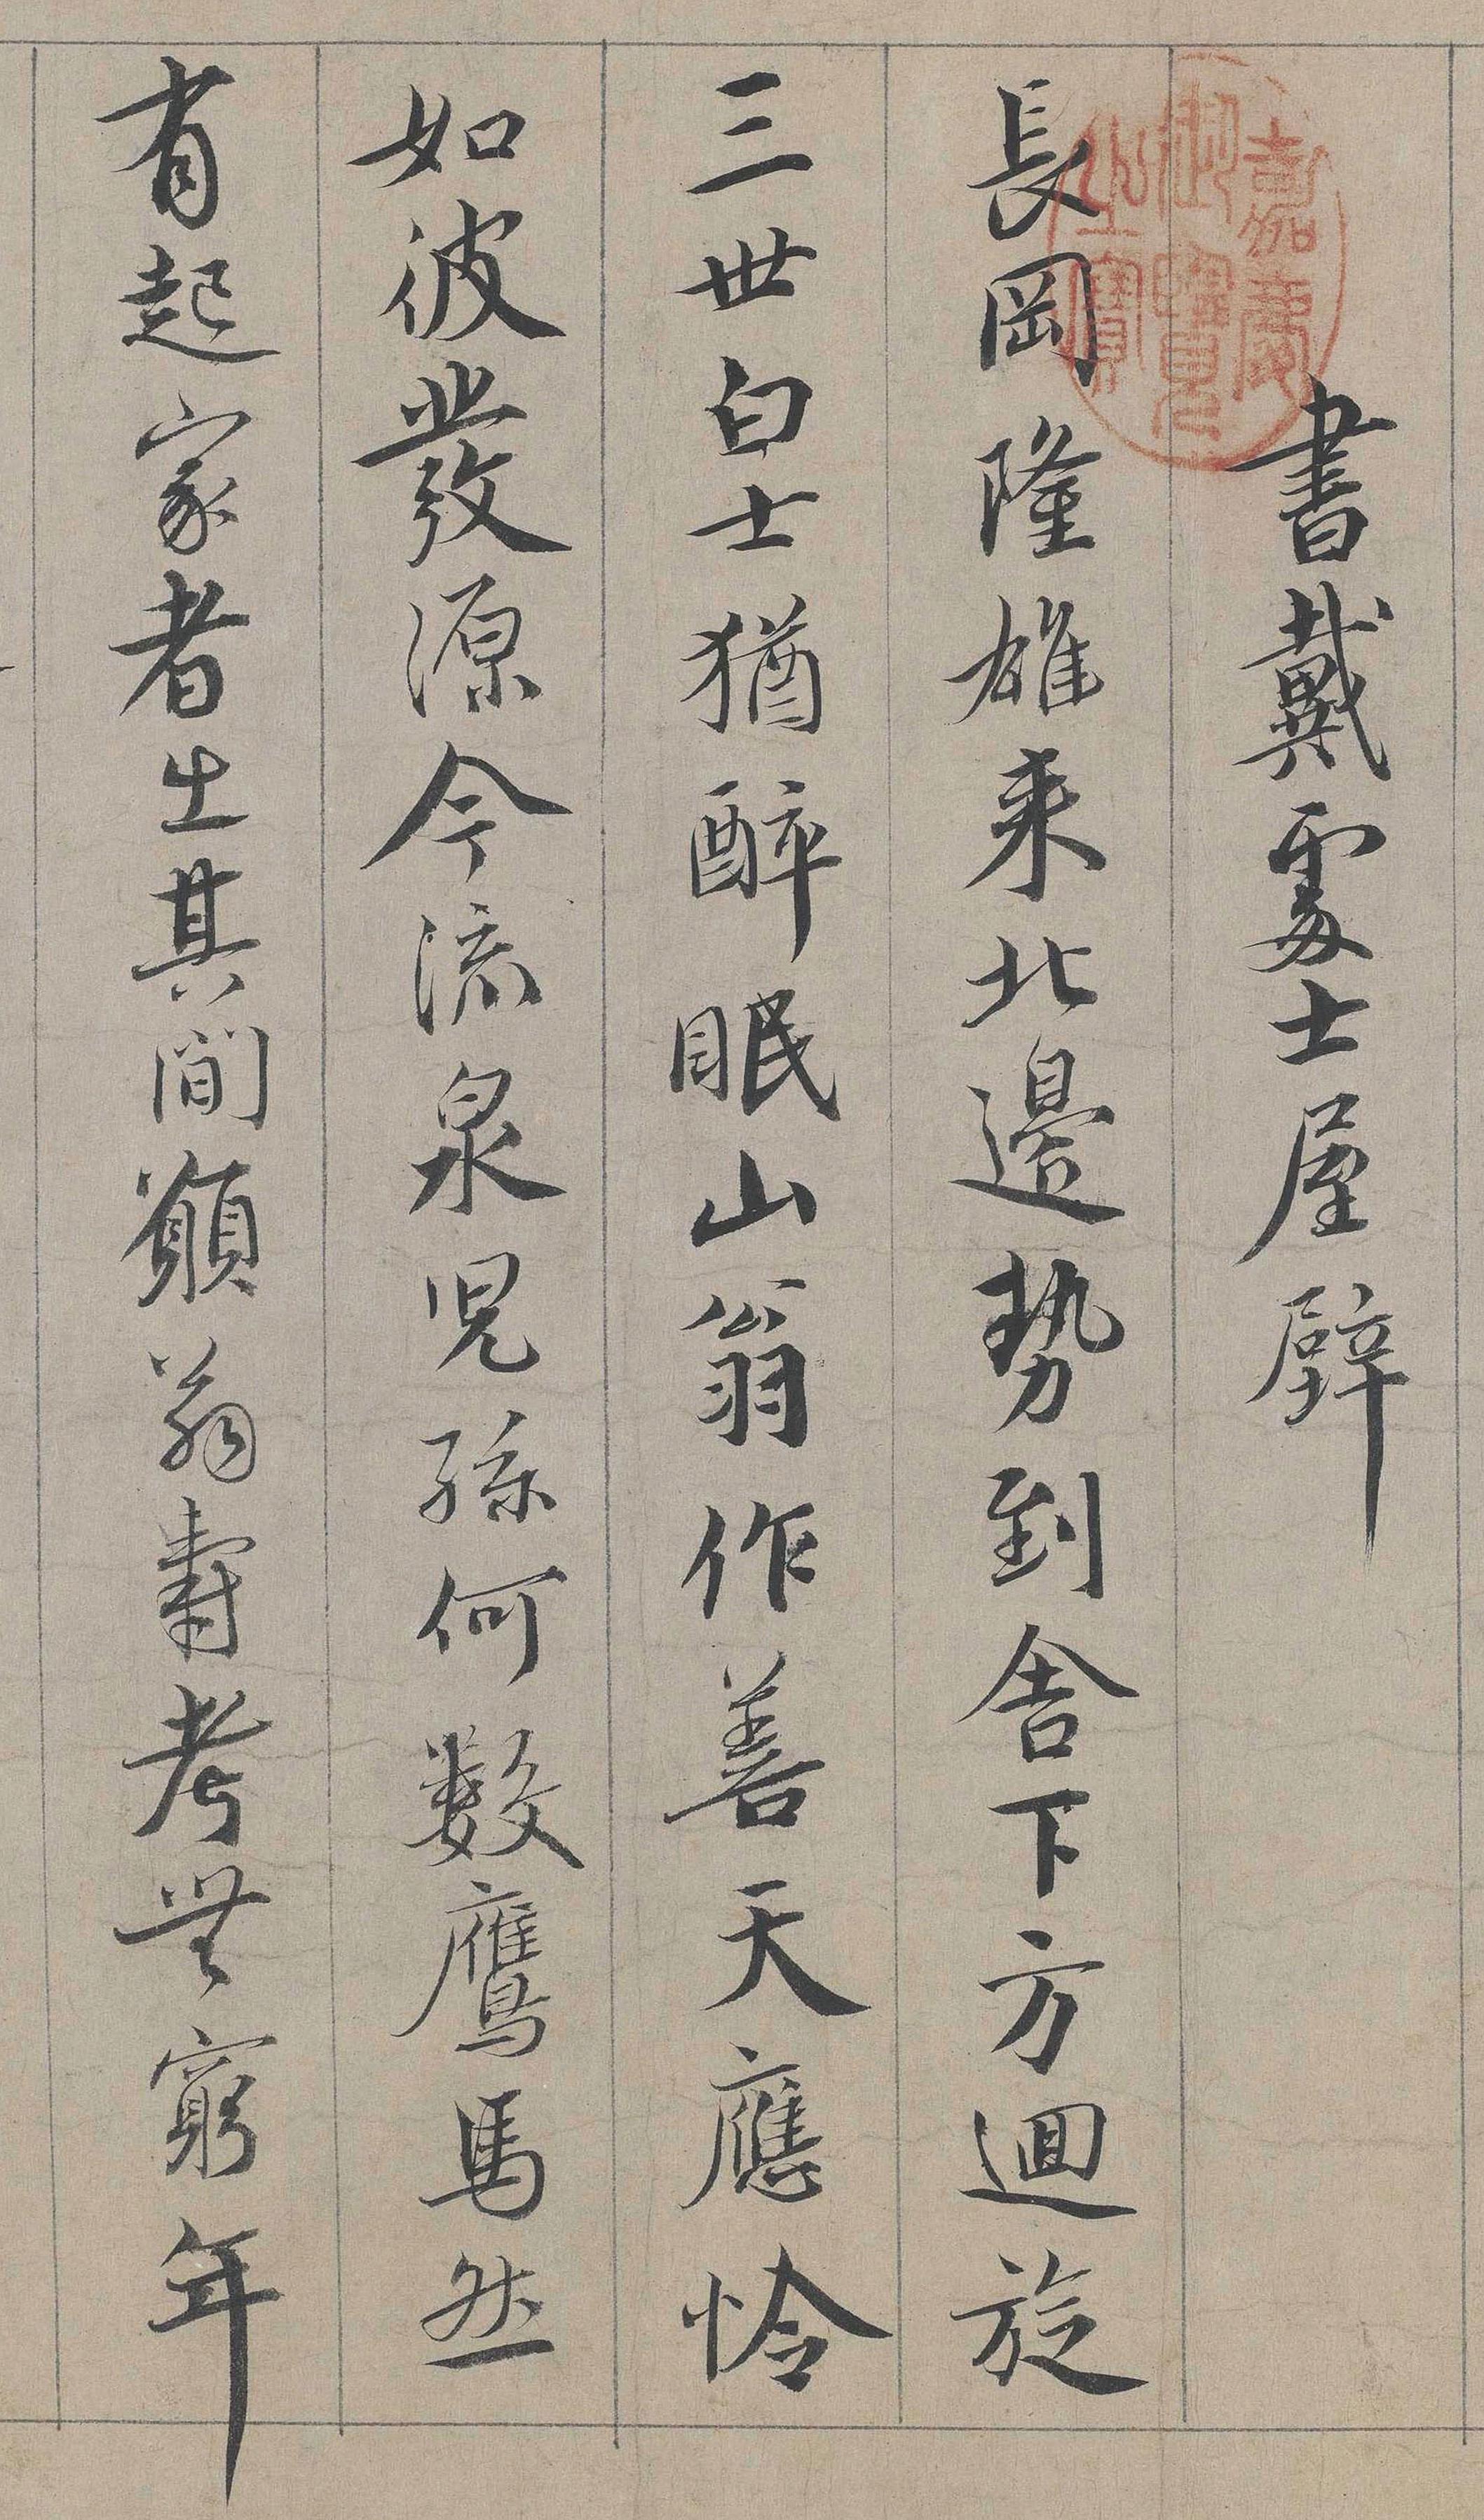 書戴處士屋壁
長岡隆雄来北邊勢到舍下方迴旋
三世白士猶醉眠山翁作善天應怜
如彼發源今流泉児孫何數鷹馬然
有起家者生其間願翁壽考無窮年
嘉慶御覽之寶